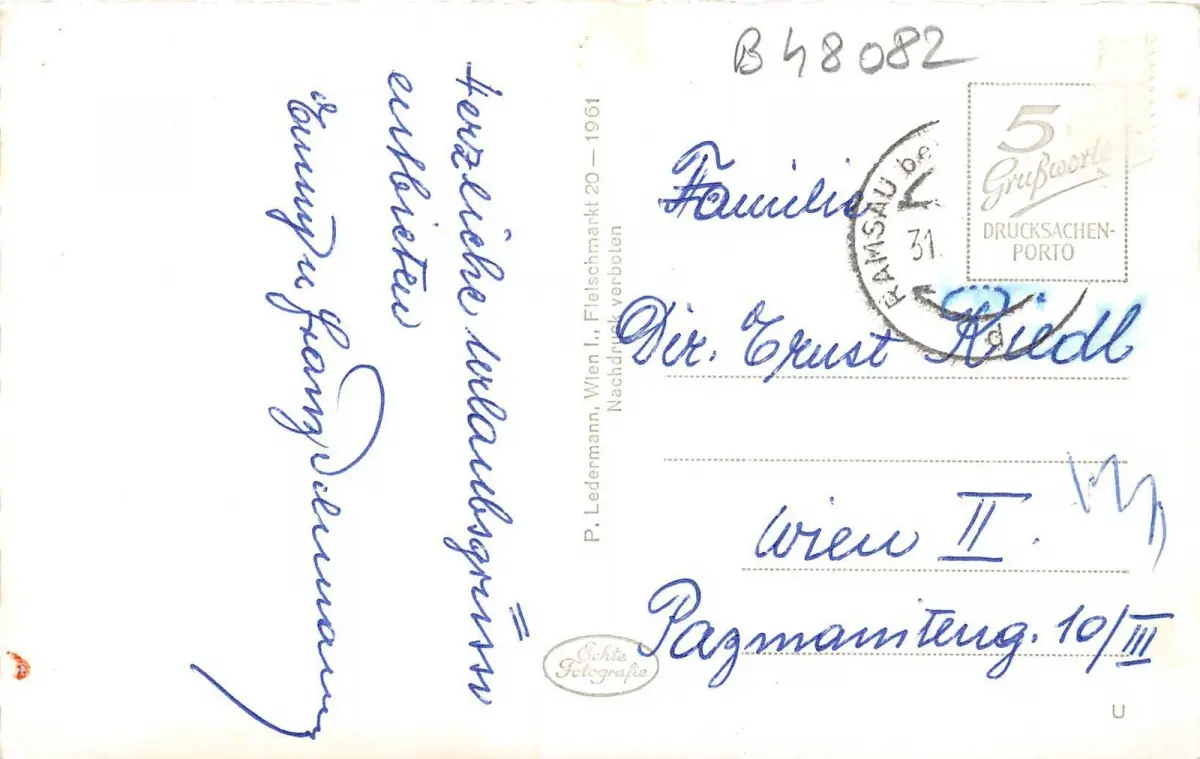 B 48082
Herzliche Urlaubsgrüsse
entbieten
P. Ledermann, Wien I., Fleischmarkt 20 — 1961
Nachdruck verboten
Echte
Fotografie
5
Grußworte
DRUCKSACHEN-
PORTO
RAMSAU be
31.
Familie
Dir. Ernst Riedl
Wien II.
Pazmaniteng. 10/III
U